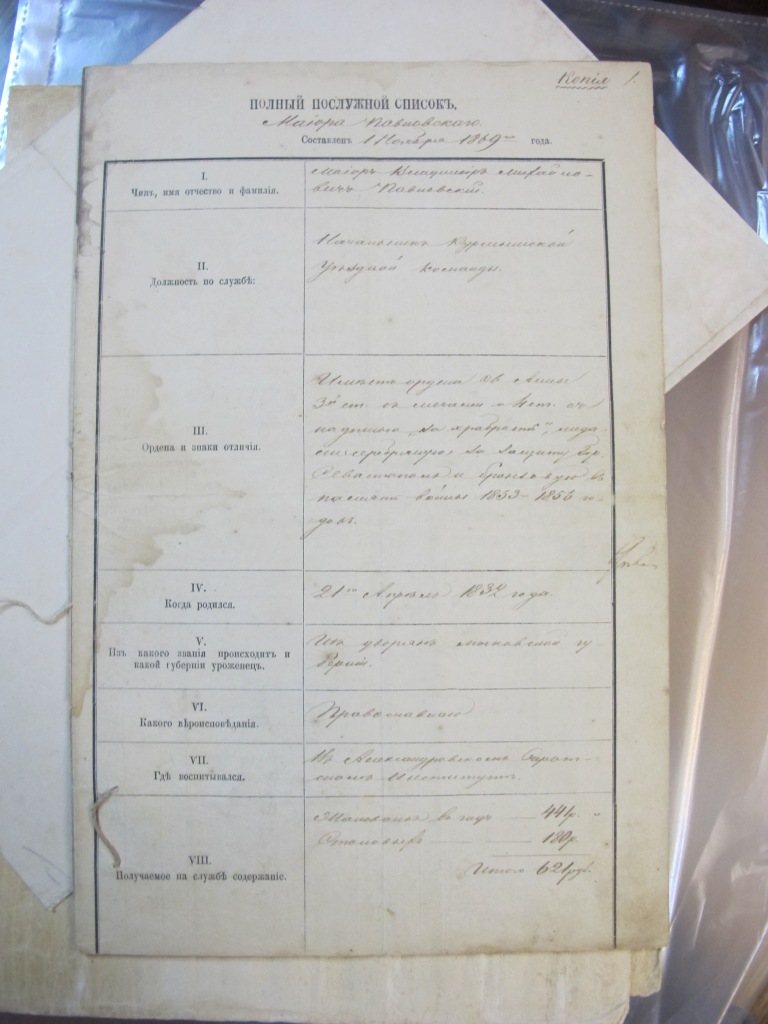 Копія 1.
ПОЛНЫЙ ПОСЛУЖНОЙ СПИСОКЪ,
Маіора Павловскаго.
Составленъ 1 Ноября 1869го года.
I.
Чинъ, имя отчество и фамилія.
Маіоръ Владиміръ Михайло-
вичъ Павловскій.
II.
Должность по службѣ:
Начальникъ Курмышской
Уѣздной Команды.
III.
Ордена и знаки отличія.
Имѣетъ ордена Св. Анны
3й ст. съ мечами и 4 ст. съ
надписью „за храбрость", меда
ли: серебряную за защиту
Севастополя и бронзовую въ
память войны 1853-1856 го-
довъ.
IV.
Когда родился.
21го Апрѣля 1832 года.
V.
Изъ какого званія происходитъ и
какой губерніи уроженецъ.
Изъ дворянъ Московской гу-
берніи.
VI.
Какого вѣроисповѣданія.
Православнаго
VII.
Гдѣ воспитывался.
Въ Александровскомъ Сирот-
скомъ Институтѣ.
VIII.
Получаемое на службѣ содержаніе.
Жалованья въ годъ 441р.
Столовыхъ 180р.
Итого 621руб.